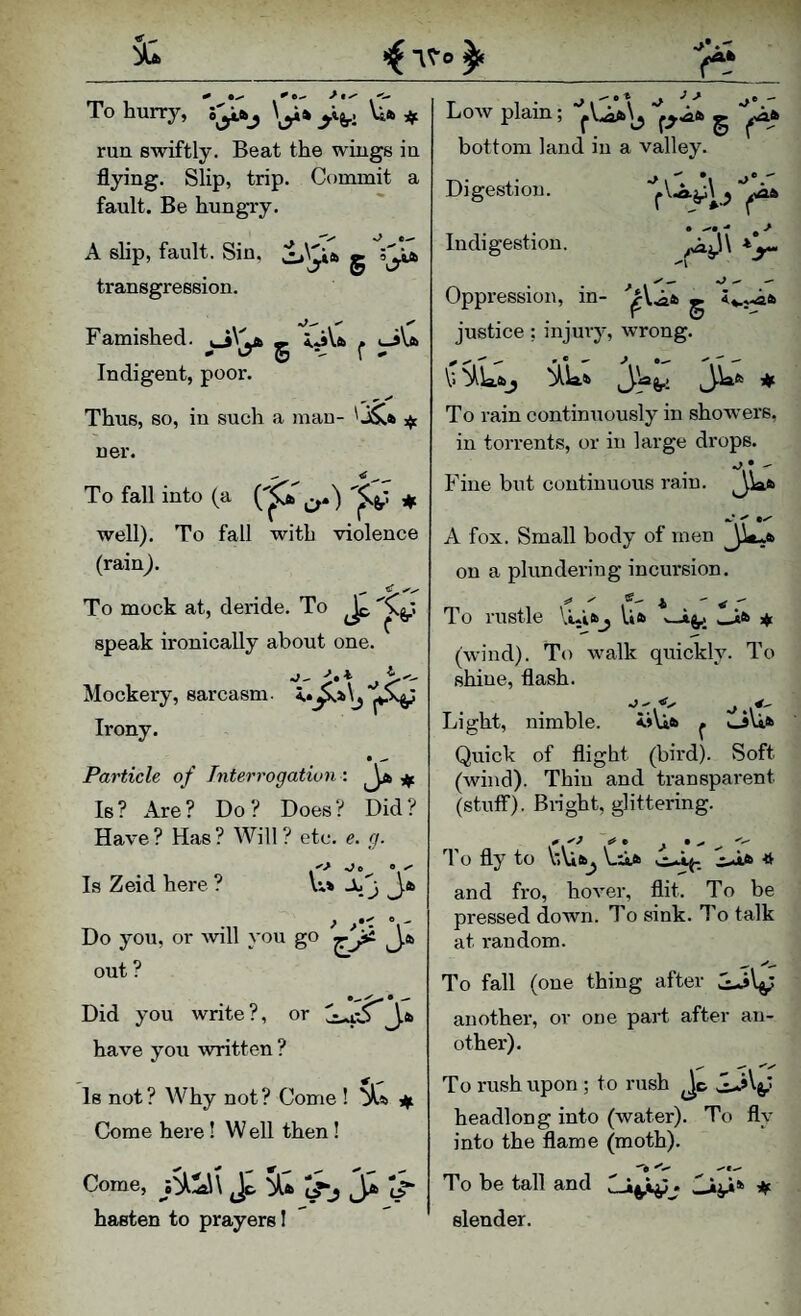 هلا
هضم
To hurry, هَفَا يَهْفُو هَفْوًا وهَفْوَةً ✻
run swiftly. Beat the wings in
flying. Slip, trip. Commit a
fault. Be hungry.
A slip, fault. Sin, هَفْوَة ج هَفَوَات
transgression.
Famished. هَافٍ م هَافِيَة ج هَوَافٍ
Indigent, poor.
Thus, so, in such a man- هٰكَذَا ✻
ner.
To fall into (a تَهَكَّمَ (من هَكِمَ) ✻
well). To fall with violence
(rain).
To mock at, deride. To تَهَكَّمَ عَلَى
speak ironically about one.
Mockery, sarcasm. تَهَكُّم وأُهْكُومَة
Irony.
Particle of Interrogation: هَلْ ✻
Is? Are? Do? Does? Did?
Have? Has? Will? etc. e. g.
Is Zeid here ? هَلْ زَيْدٌ هُنَا
Do you, or will you go هَلْ تَخْرُجُ
out ?
Did you write?, or هَلْ كَتَبْتَ
have you written ?
Is not? Why not? Come ! هَلَّا ✻
Come here! Well then !
Come, حَيَّ هَلْ وحَيَّ هَلَا عَلَى الصَّلَاةِ
hasten to prayers !
Low plain; هَضْم ج هُضُوم وأَهْضَام
bottom land in a valley.
Digestion. هَضْم وانْهِضَام
Indigestion. سُوءُ الْهَضْمِ
Oppression, in- هَضِيمَة ج هَضَائِم
justice ; injury, wrong.
✻ هَطَلَ يَهْطِلُ هَطْلًا وهَطَلَانًا
To rain continuously in showers,
in torrents, or in large drops.
Fine but continuous rain. هَطْل
A fox. Small body of men هَيْطَل
on a plundering incursion.
To rustle هَفَّ يَهِفُّ هَفًّا وهَفِيفًا ✻
(wind). To walk quickly. To
shine, flash.
Light, nimble. هَفَّاف م هَفَّافَة
Quick of flight (bird). Soft
(wind). Thin and transparent
(stuff). Bright, glittering.
To fly to هَفَتَ يَهْفِتُ هَفْتًا وهُفَاتًا ✻
and fro, hover, flit. To be
pressed down. To sink. To talk
at random.
To fall (one thing after تَهَافَتَ
another, or one part after an-
other).
To rush upon ; to rush تَهَافَتَ عَلَى
headlong into (water). To fly
into the flame (moth).
To be tall and هَفْهَفَ وتَهَفْهَفَ ✻
slender.